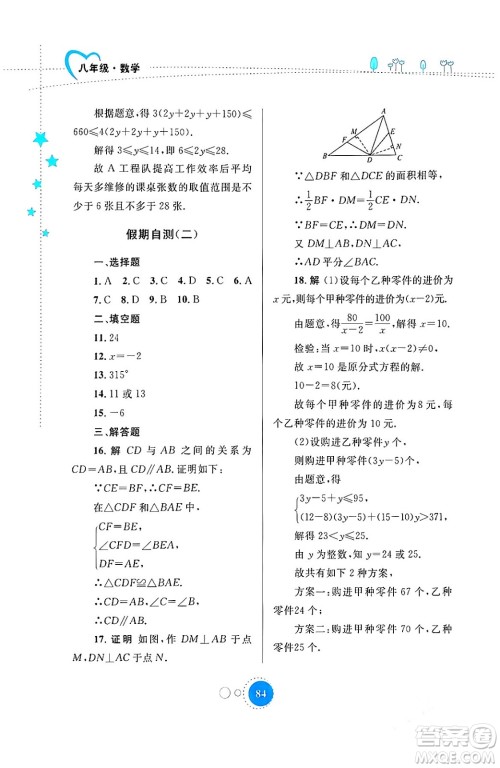 八年级·数学
根据题意，得 3(2y+2y+y+150)≤
660≤4(2y+2y+y+150).
解得 3≤y≤14，即 6≤2y≤28.
故 A 工程队提高工作效率后平均
每天多维修的课桌张数的取值范围是不
少于 6 张且不多于 28 张.
假期自测(二)
一、选择题
1. D 2. B 3. C 4. A 5. D 6. A
7. C 8. C 9. B 10. B
二、填空题
11. 24
12. x=-2
13. 315°
14. 11 或 13
15. -6
三、解答题
16. 解 CD 与 AB 之间的关系为
CD=AB，且 CD∥AB. 证明如下：
∵CE=BF，∴CF=BE.
在△CDF 和△BAE 中，
CF=BE，
∠CFD=∠BEA，
DF=AE，
∴△CDF≌△BAE.
∴CD=BA，∠C=∠B.
∴CD∥BA.
17. 证明 如图，作 DM⊥AB 于点
M，DN⊥AC 于点 N.
A
M
E
F
N
B
D
C
∵△DBF 和△DCE 的面积相等，
∴1/2 BF·DM=1/2 CE·DN.
∵BF=CE，∴DM=DN.
又 DM⊥AB，DN⊥AC，
∴AD 平分∠BAC.
18. 解 (1)设每个乙种零件的进价为
x 元，则每个甲种零件的进价为(x-2)元.
由题意，得 80/(x-2)=100/x. 解得 x=10.
检验：当 x=10 时，x(x-2)≠0.
故 x=10 是原分式方程的解.
10-2=8(元).
故每个甲种零件的进价为 8 元，
每个乙种零件的进价为 10 元.
(2)设购进乙种零件 y 个，
则购进甲种零件(3y-5)个.
由题意，得
3y-5+y≤95，
(12-8)(3y-5)+(15-10)y>371，
解得 23<y≤25.
由 y 为整数，知 y=24 或 25.
故共有如下 2 种方案，
方案一：购进甲种零件 67 个，乙种
零件24 个；
方案二：购进甲种零件 70 个，乙种
零件 25 个.
84